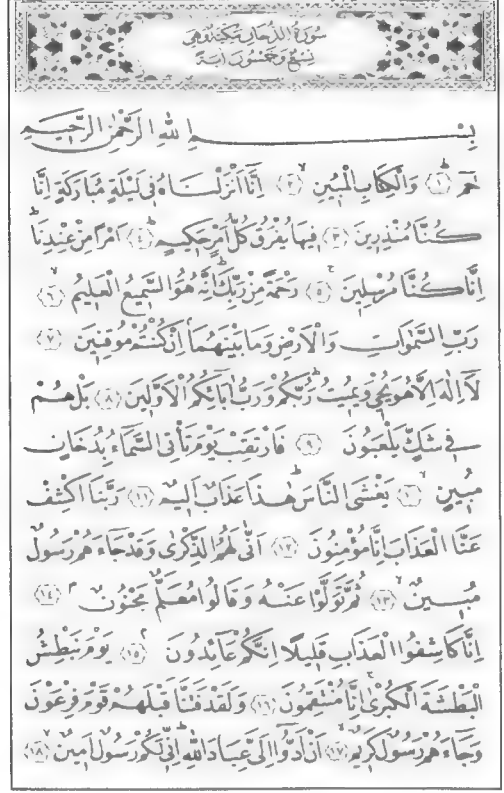 سورة الدخان مكية وهي
تسع وخمسون آية
بِسْمِ اللهِ الرَّحْمٰنِ الرَّحِيمِ
حٰمٓ ﴿١﴾ وَالْكِتَابِ الْمُبِينِ ﴿٢﴾ اِنَّٓا اَنْزَلْنَاهُ فِي لَيْلَةٍ مُبَارَكَةٍ اِنَّا
كُنَّا مُنْذِرِينَ ﴿٣﴾ فِيهَا يُفْرَقُ كُلُّ اَمْرٍ حَكِيمٍ ﴿٤﴾ اَمْرًا مِنْ عِنْدِنَا
اِنَّا كُنَّا مُرْسِلِينَ ﴿٥﴾ رَحْمَةً مِنْ رَبِّكَ اِنَّهُ هُوَ السَّمِيعُ الْعَلِيمُ ﴿٦﴾
رَبِّ السَّمٰوَاتِ وَالْاَرْضِ وَمَا بَيْنَهُمَا اِنْ كُنْتُمْ مُوقِنِينَ ﴿٧﴾
لَٓا اِلٰهَ اِلَّا هُوَ يُحْيِ وَيُمِيتُ رَبُّكُمْ وَرَبُّ اٰبَٓائِكُمُ الْاَوَّلِينَ ﴿٨﴾ بَلْ هُمْ
فِي شَكٍّ يَلْعَبُونَ ﴿٩﴾ فَارْتَقِبْ يَوْمَ تَأْتِي السَّمَٓاءُ بِدُخَانٍ
مُبِينٍ ﴿١٠﴾ يَغْشَى النَّاسَ هٰذَا عَذَابٌ اَلِيمٌ ﴿١١﴾ رَبَّنَا اكْشِفْ
عَنَّا الْعَذَابَ اِنَّا مُؤْمِنُونَ ﴿١٢﴾ اَنّٰى لَهُمُ الذِّكْرٰى وَقَدْ جَٓاءَهُمْ رَسُولٌ
مُبِينٌ ﴿١٣﴾ ثُمَّ تَوَلَّوْا عَنْهُ وَقَالُوا مُعَلَّمٌ مَجْنُونٌ ﴿١٤﴾
اِنَّا كَاشِفُوا الْعَذَابِ قَلِيلًا اِنَّكُمْ عَٓائِدُونَ ﴿١٥﴾ يَوْمَ نَبْطِشُ
الْبَطْشَةَ الْكُبْرٰى اِنَّا مُنْتَقِمُونَ ﴿١٦﴾ وَلَقَدْ فَتَنَّا قَبْلَهُمْ قَوْمَ فِرْعَوْنَ
وَجَٓاءَهُمْ رَسُولٌ كَرِيمٌ ﴿١٧﴾ اَنْ اَدُّٓوا اِلَيَّ عِبَادَ اللهِ اِنِّي لَكُمْ رَسُولٌ اَمِينٌ ﴿١٨﴾